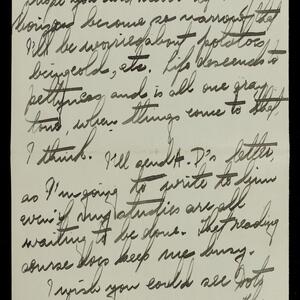 hope you
horizons become so narrow that
I'll be worried about potatoes
being cold, etc. Life descends to
pettiness and is all one gray
tone, when things come to that,
I think. I'll send H. D's letter,
as I'm going to write to him
even if my studies are all
waiting to be done. That reading
course does keep me busy.
I wish you could see